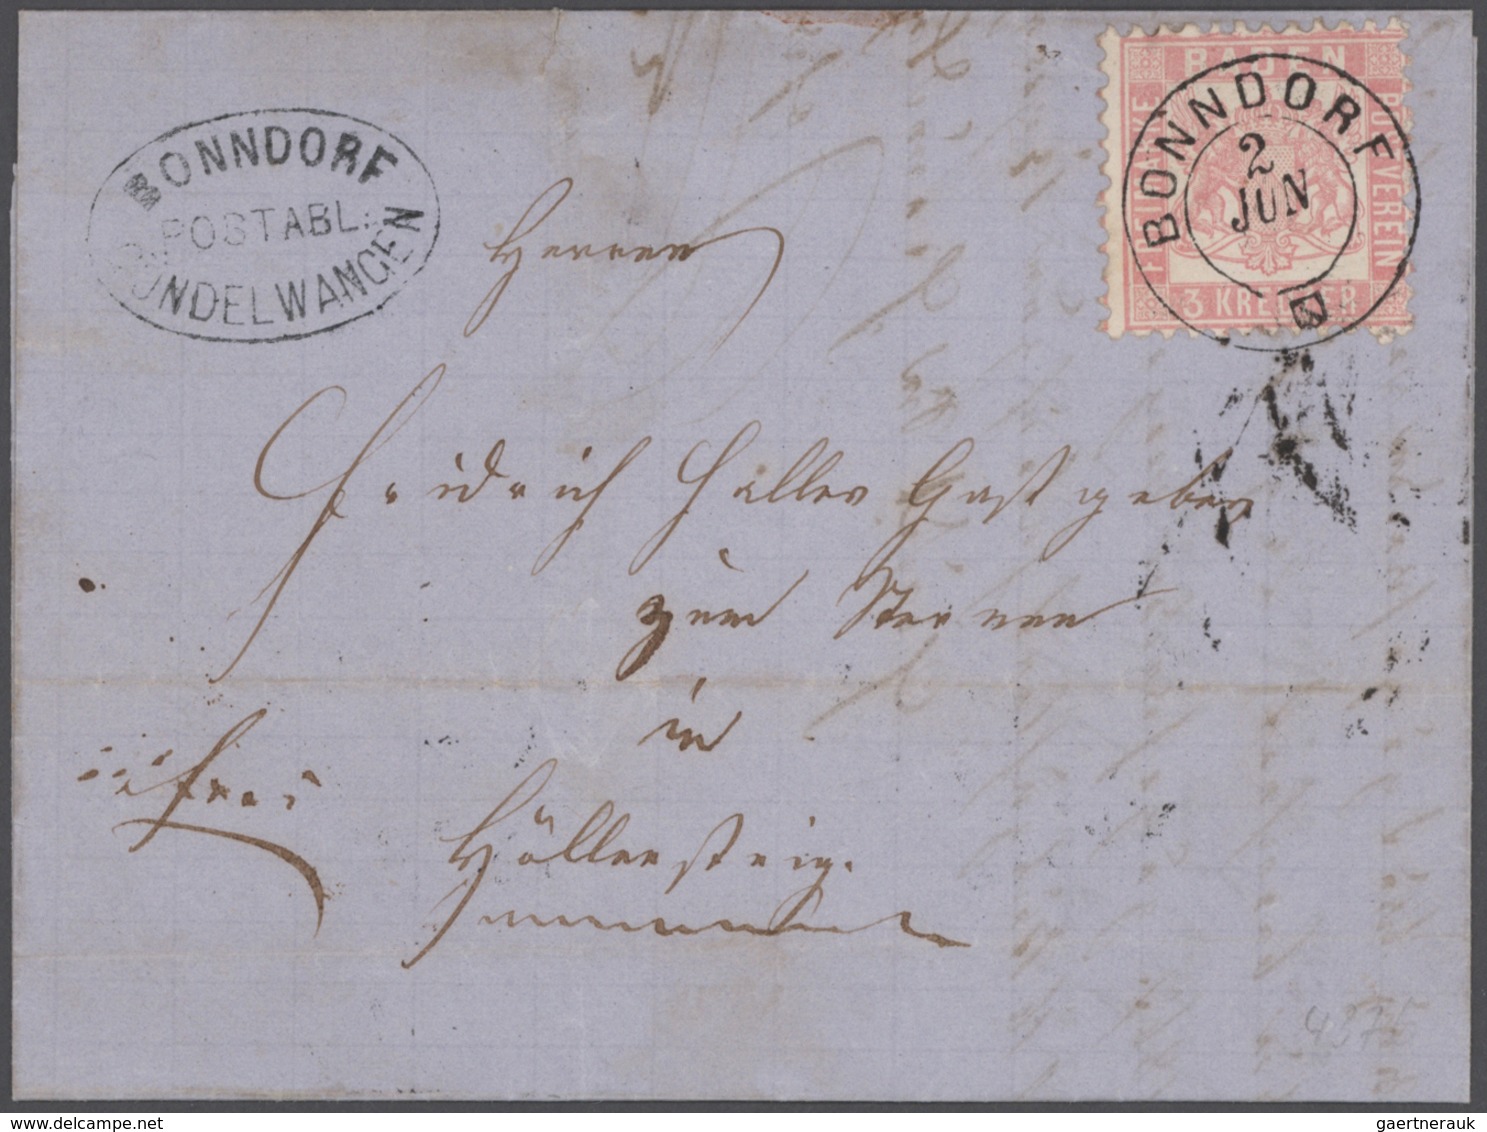 BONNDORF
POSTABL.
GÜNDELWANGEN
BADEN
FREIMARKE
POSTVEREIN
3 KREUZER
BONNDORF
2
JUN
Herren
Fridrich Faller Gastgeber
zum Sternen
in
frei
Höllensteig.
gaertnerauk